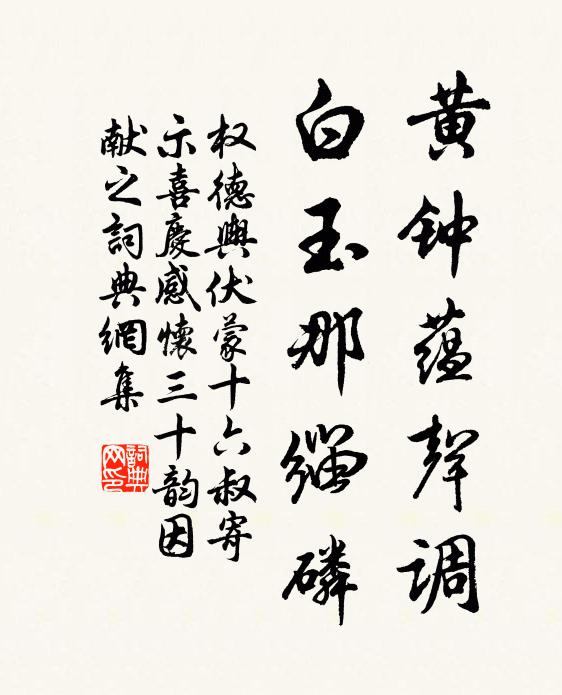 黄钟蕴聲調
白玉那緇磷
权德輿伏蒙十六叔寄
示喜慶感懷三十韵因
献之詞典網集
詞典
网印